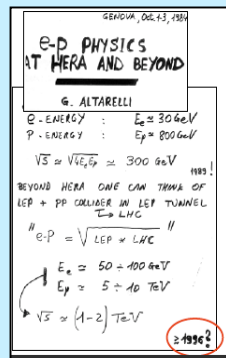 GENOVA, Oct. 1-3, 1984
e-p PHYSICS
AT HERA AND BEYOND
G. ALTARELLI
e-ENERGY : Ee ≃ 30 GeV
P-ENERGY : Ep ≃ 800 GeV
√s ≃ √4EeEp ≃ 300 GeV
1989!
BEYOND HERA ONE CAN THINK OF
LEP + PP COLLIDER IN LEP TUNNEL
↳ LHC
"e-p = √LEP × LHC"
Ee ≃ 50 ÷ 100 GeV
Ep ≃ 5 ÷ 10 TeV
√s ≃ (1-2) TeV
≥ 1996?